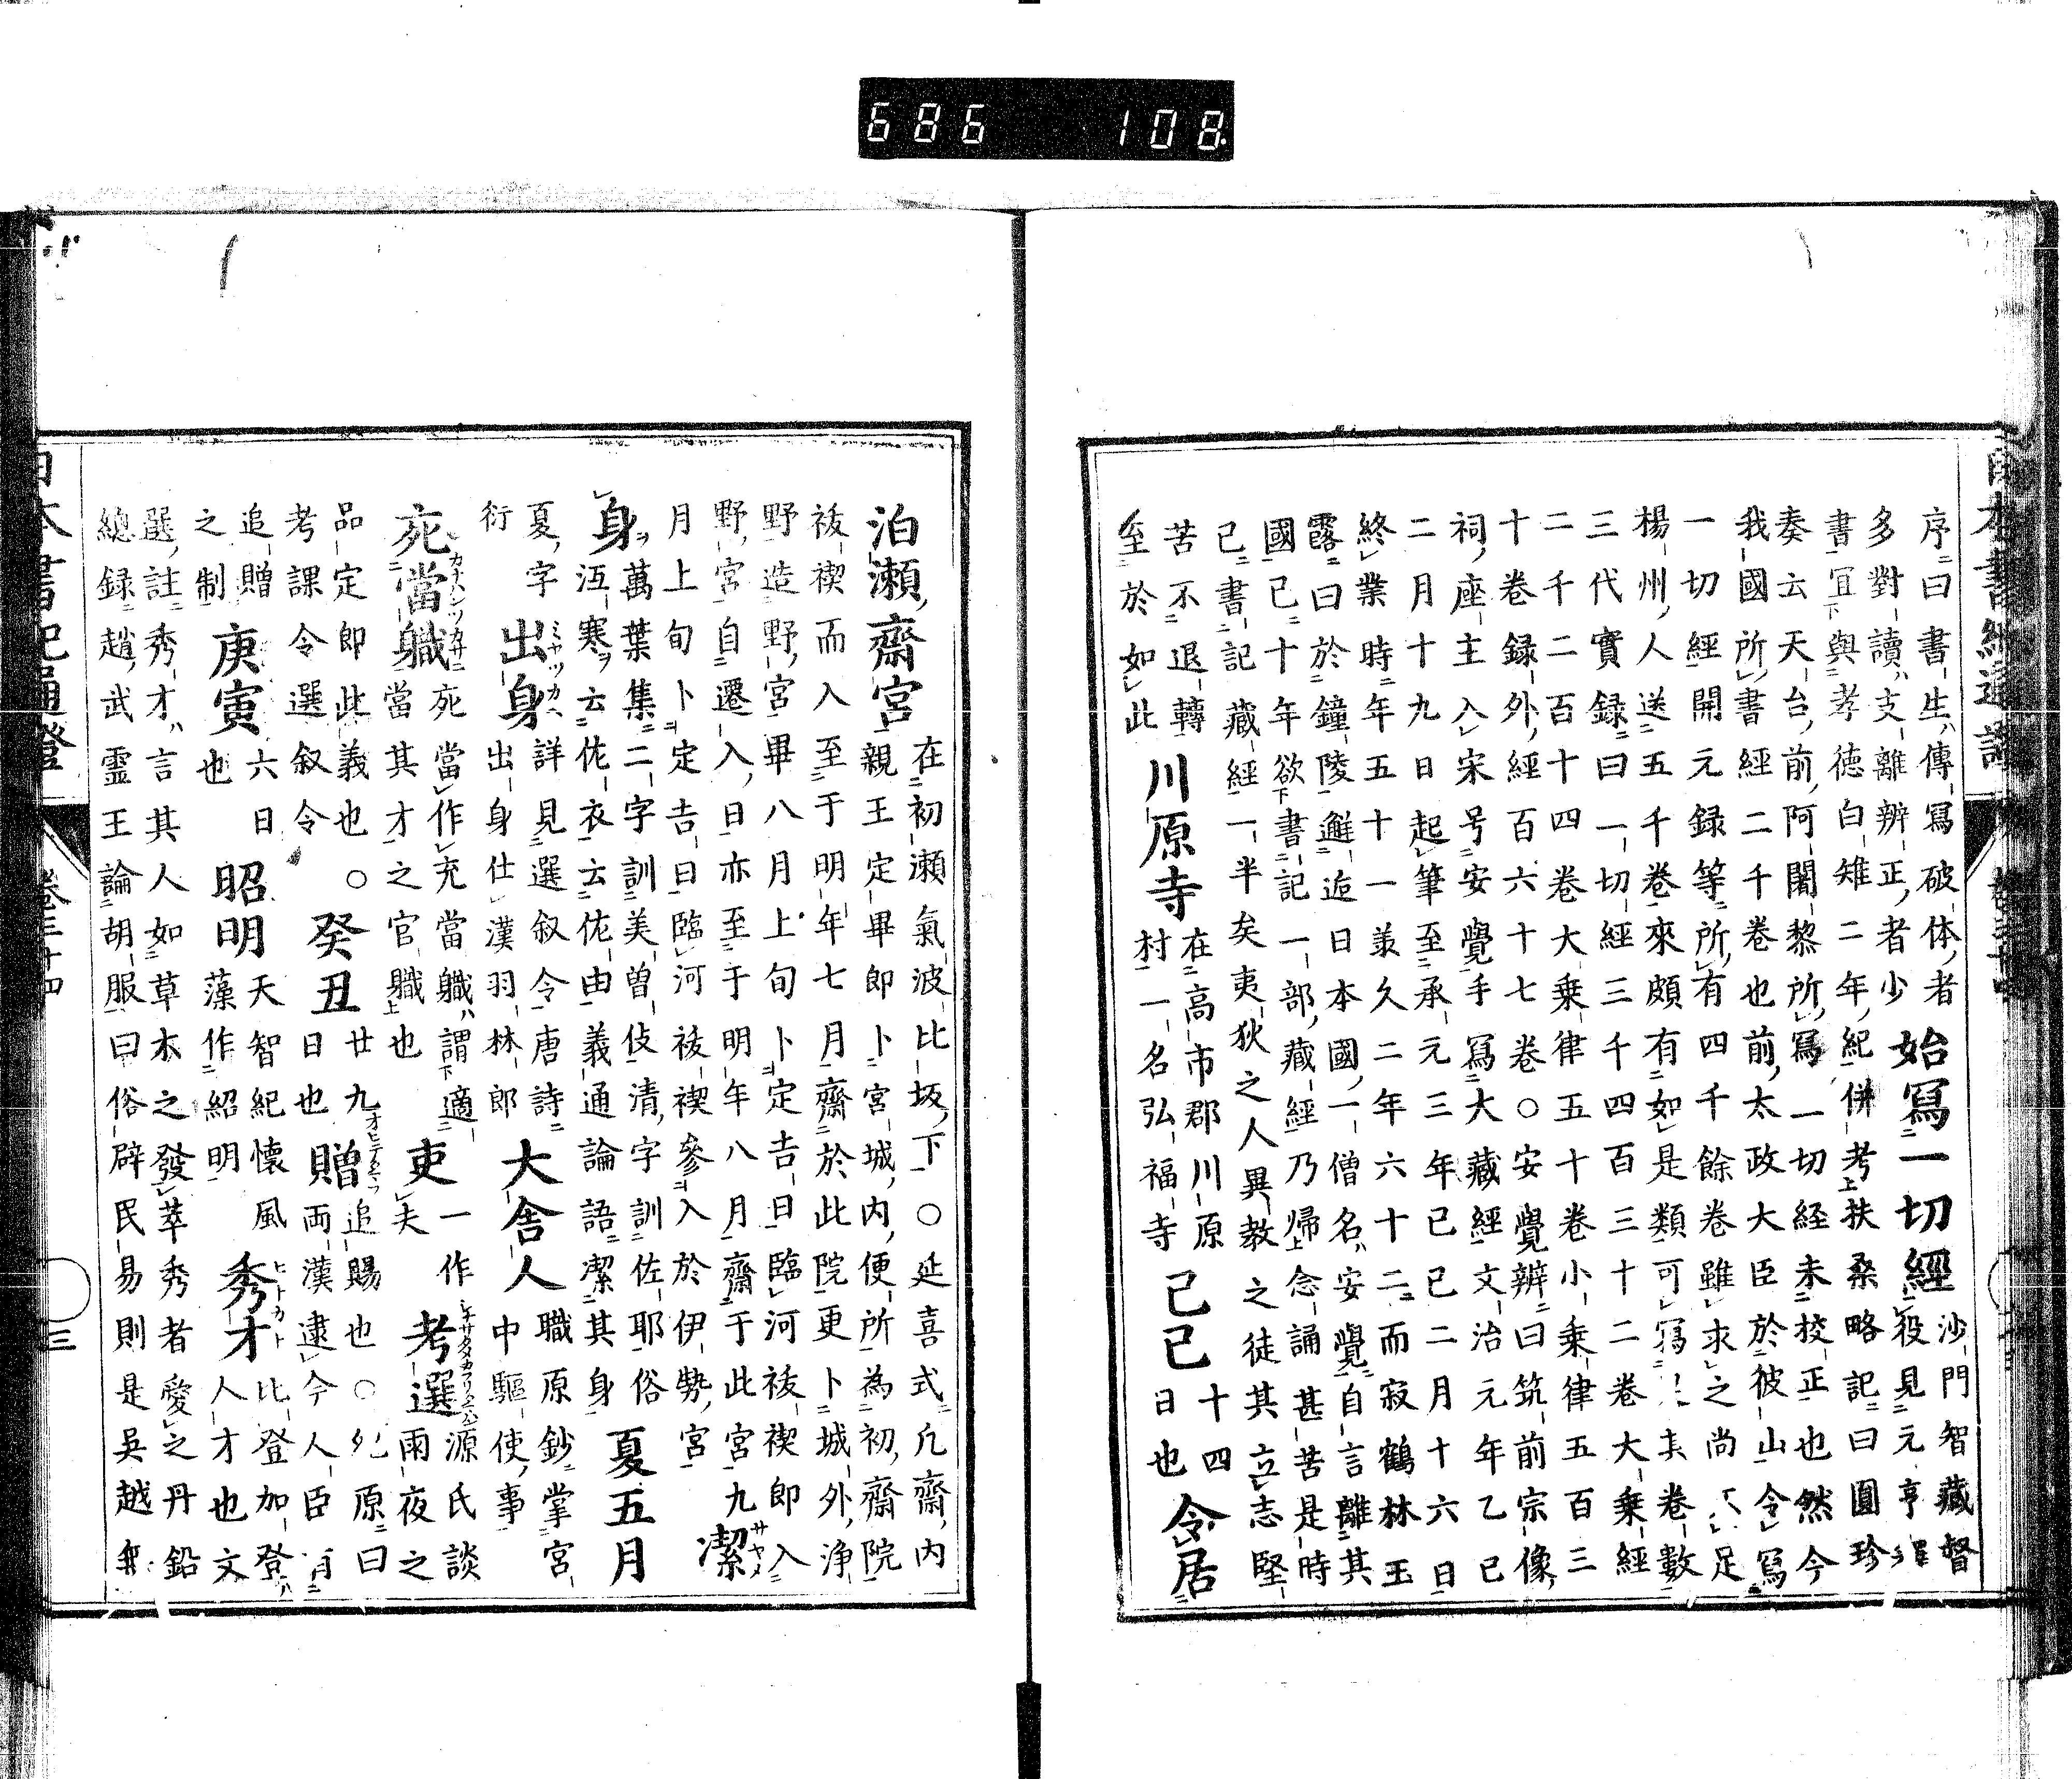 686 108
序曰書生傳寫破体者
多對讀支離辨正者少
始寫一切經
沙門智藏督
役見元亨釋
書宜與孝徳白雉二年紀併考扶桑略記曰圓珍
奏云天台前阿闍黎所寫一切経未校正也然今
我國所書經二千巻也前太政大臣於彼山令寫
一切經開元録等所有四千餘巻雖求之尚 足
楊州人送五千巻來頗有如是類可寫 巻數
三代實録曰一切經三千四百三十二巻大乗經
二千二百十四巻大乗律五十巻小乗律五百三
十巻録外經百六十七巻○安覺辨曰筑前宗像
祠座主入宋号安覺手寫大藏經文治元年乙巳
二月十九日起筆至承元三年己巳二月十六日
終業時年五十一羕久二年六十二而寂鶴林玉
露曰於鐘陵邂逅日本國一僧名安覺自言離其
國已十年欲書記一部藏經乃帰念誦甚苦是時
已書記藏經一半矣夷狄之人異教之徒其立志堅
苦不退轉
至於如此
川原寺
在高市郡川原
村一名弘福寺
己巳
十四
日也
令居
泊瀬齋宮
在初瀬氣波比坂下○延喜式凡齋内
親王定畢即卜宮城内便所為初齋院
祓禊而入至于明年七月齋於此院更卜城外浄
野造野宮畢八月上旬卜定吉日臨河祓禊即入
野宮自遷入日亦至于明年八月齋于此宮九
月上旬卜定吉日臨河祓禊參入於伊勢宮
潔
サヤメ
身
ヲ
萬葉集二字訓美曽伎清字訓佐耶俗
沍寒ヲ云佐衣云佐由義通論語潔其身
夏五月
夏字
衍
出身
ミヤツカヘ
詳見選叙令唐詩
出身仕漢羽林郎
大舎人
職原鈔掌宮
中驅使事
死當職
カナハンツカサニ
死當作充當職謂適
當其才之官職也
吏
一作
夫
考選
シナサタメカウフリタマハム
源氏談
雨夜之
品定即此義也○
考課令選叙令
癸丑
廿九
日也
贈
オヒテタマフ
追賜也○ 原曰
両漢逮今人臣有
追贈
之制
庚寅
六日
也
昭明
天智紀懐風
藻作紹明
秀才
ヒトカト
比登加登
人才也文
選註秀才言其人如草木之發萃秀者愛之丹鉛
總録趙武霊王論胡服曰俗辟民易則是吳越無
日本書紀通證 卷三十四 三